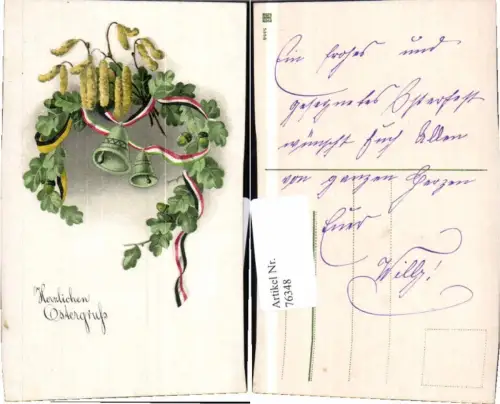 Herzlichen
Ostergruß
Ein frohes und
gesegnetes Osterfest
wünscht Euch Allen
von ganzen Herzen
Euer
Willy!
Artikel Nr.
76348